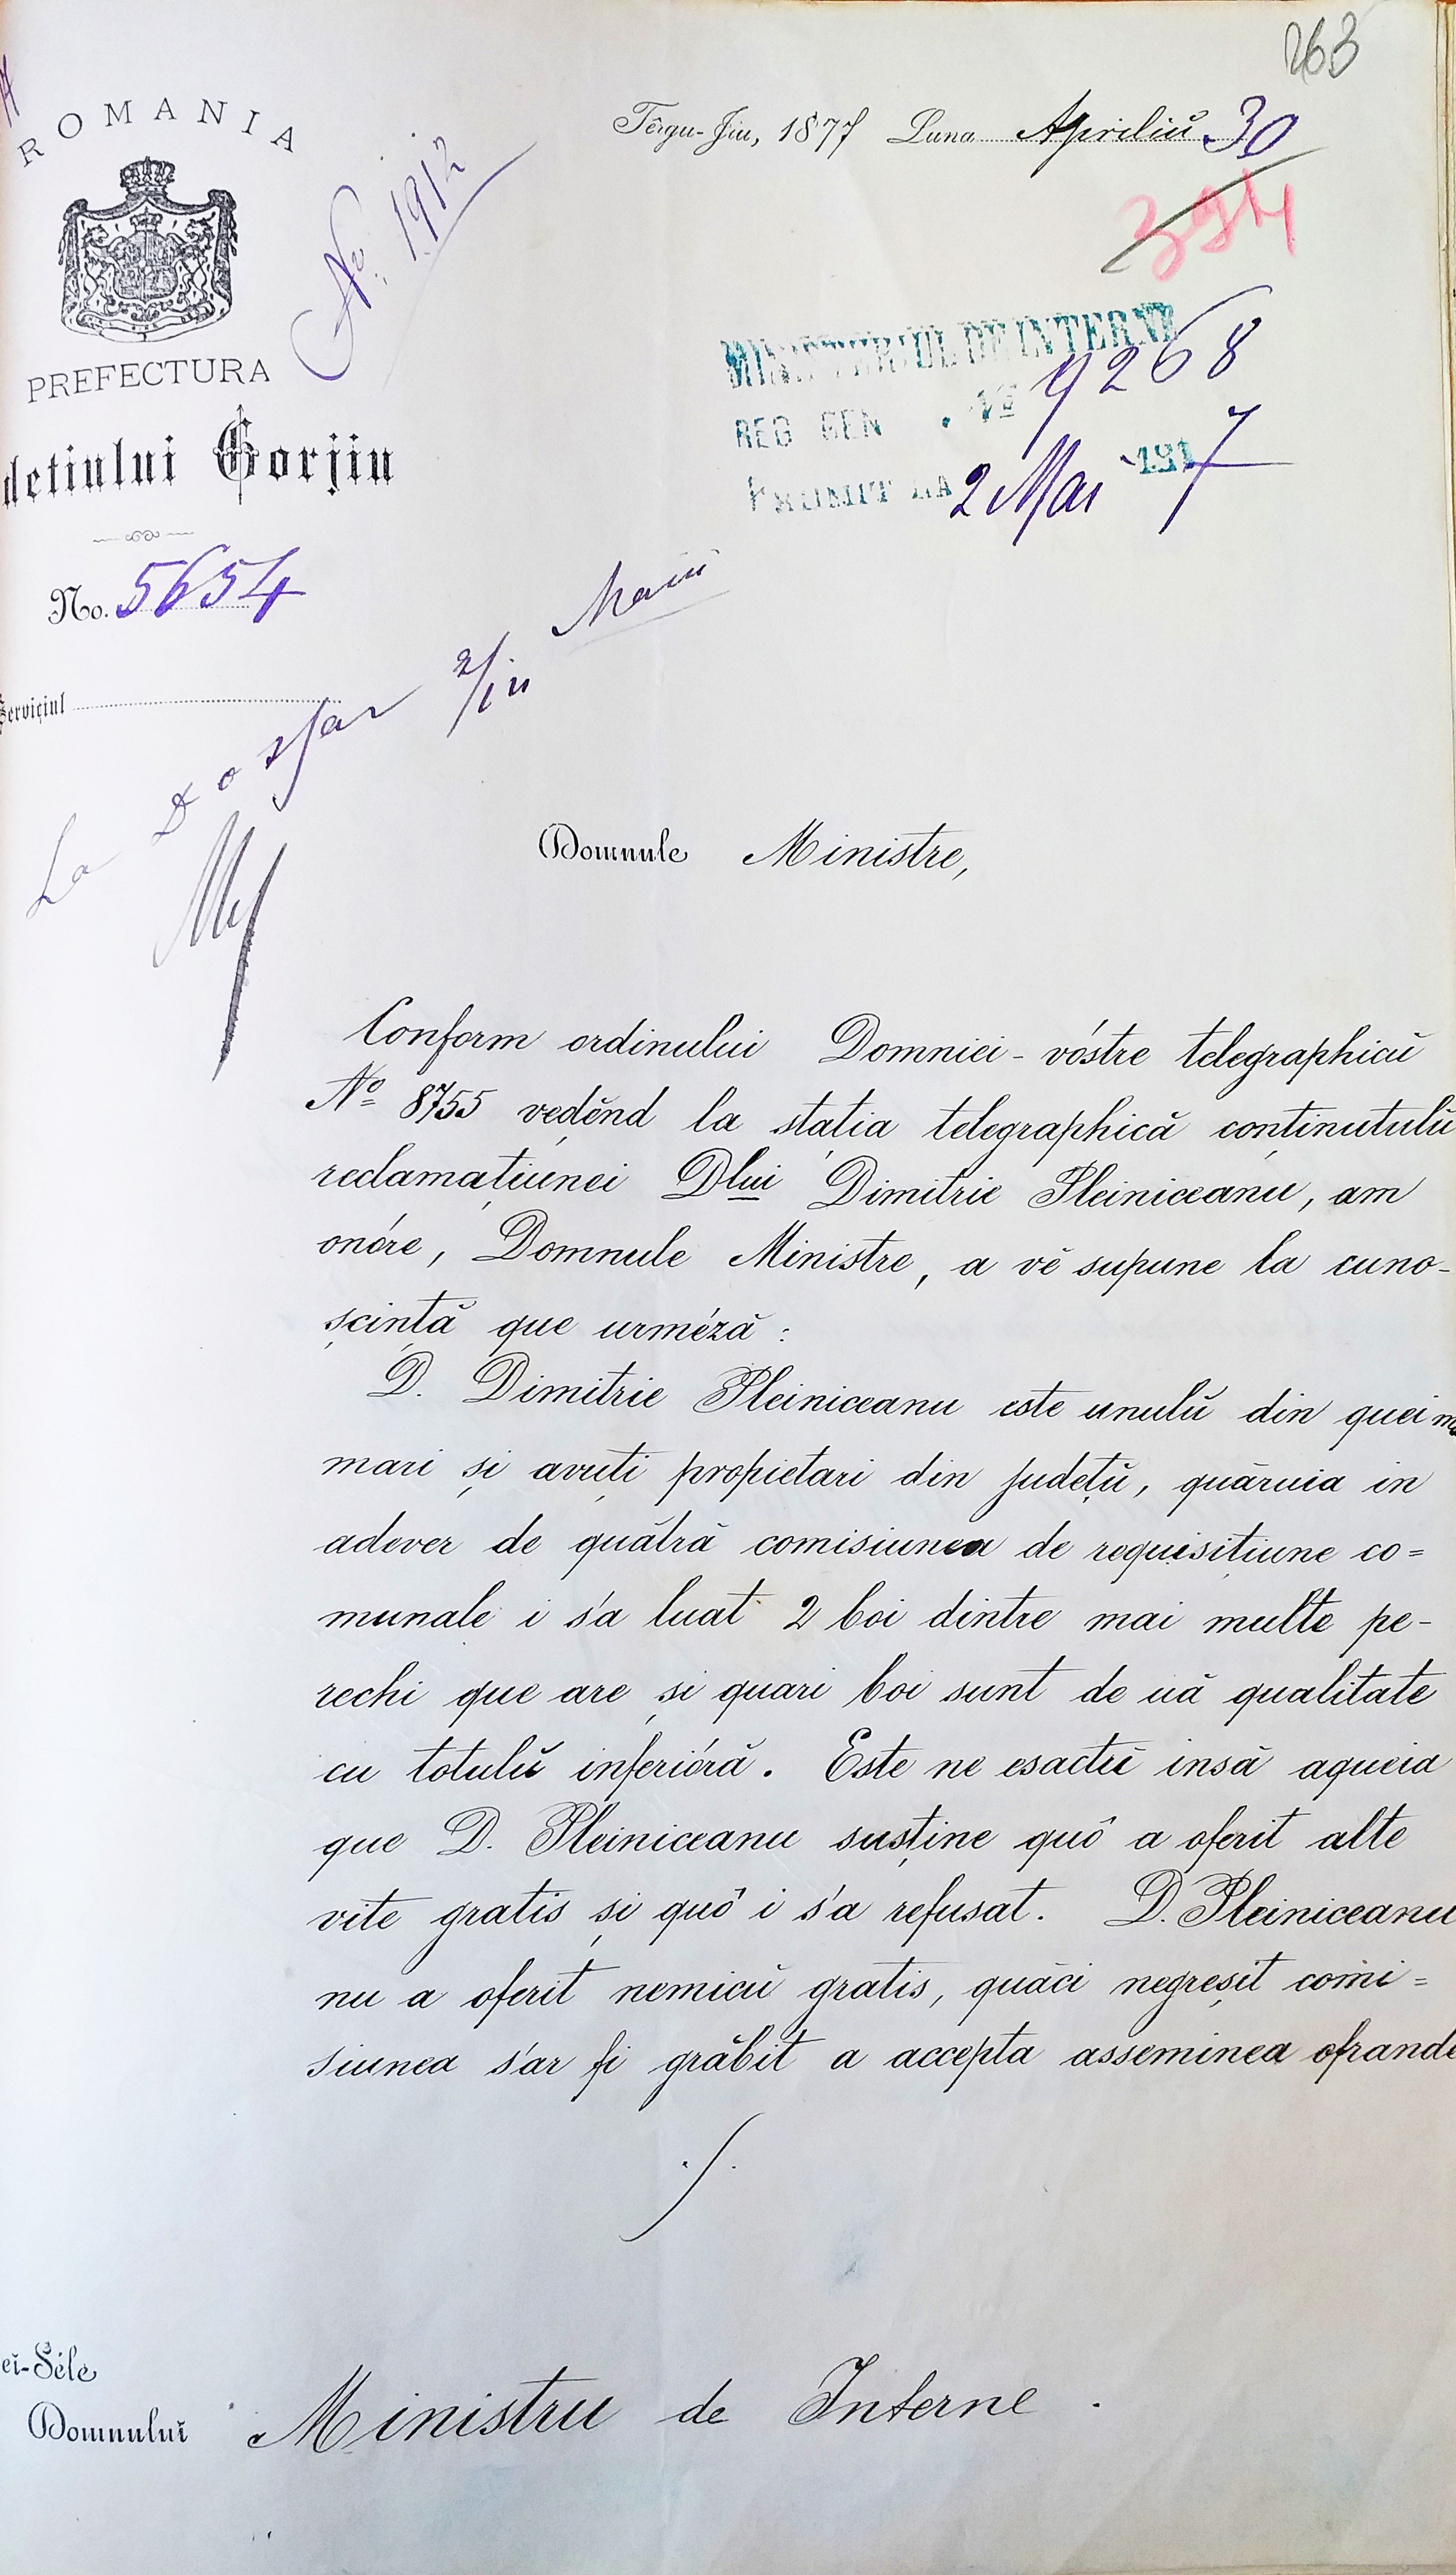 263
ROMANIA
Têrgu-Jiu, 1877 Luna Apriliŭ 30
394
No. 1912
MINISTERIUL DE INTERNE
REG GEN No 9268
PRIMIT LA 2 Mai 1877
PREFECTURA
detiului Gorjiu
No. 5654
Serviciul
La Dosar 2/ Maiu
Domnule Ministre,
Conform ordinului Domniei-vóstre telegraphicŭ
No 8755 vedĕnd la stația telegraphică conținutulŭ
reclamațiunei Dlui Dimitrie Pleiniceanu, am
onóre, Domnule Ministre, a vĕ supune la cuno-
șcință que urméză :
D. Dimitrie Pleiniceanu este unulŭ din quei
mari și avuți propietari din județŭ, quăruia in
adever de quătră comisiunea de requisițiune co=
munale i s'a luat 2 boi dintre mai multe pe-
rechi que are și quari boi sunt de uă qualitate
cu totulŭ inferióră. Este ne esactŭ insă aqueia
que D. Pleiniceanu susține quô a oferit alte
vite gratis și quô i s'a refusat. D. Pleiniceanu
nu a oferit nemicŭ gratis, quăci negreșit comi=
siunea s'ar fi grăbit a accepta asseminea ofrande
./.
ei-Séle
Domnului Ministru de Interne.